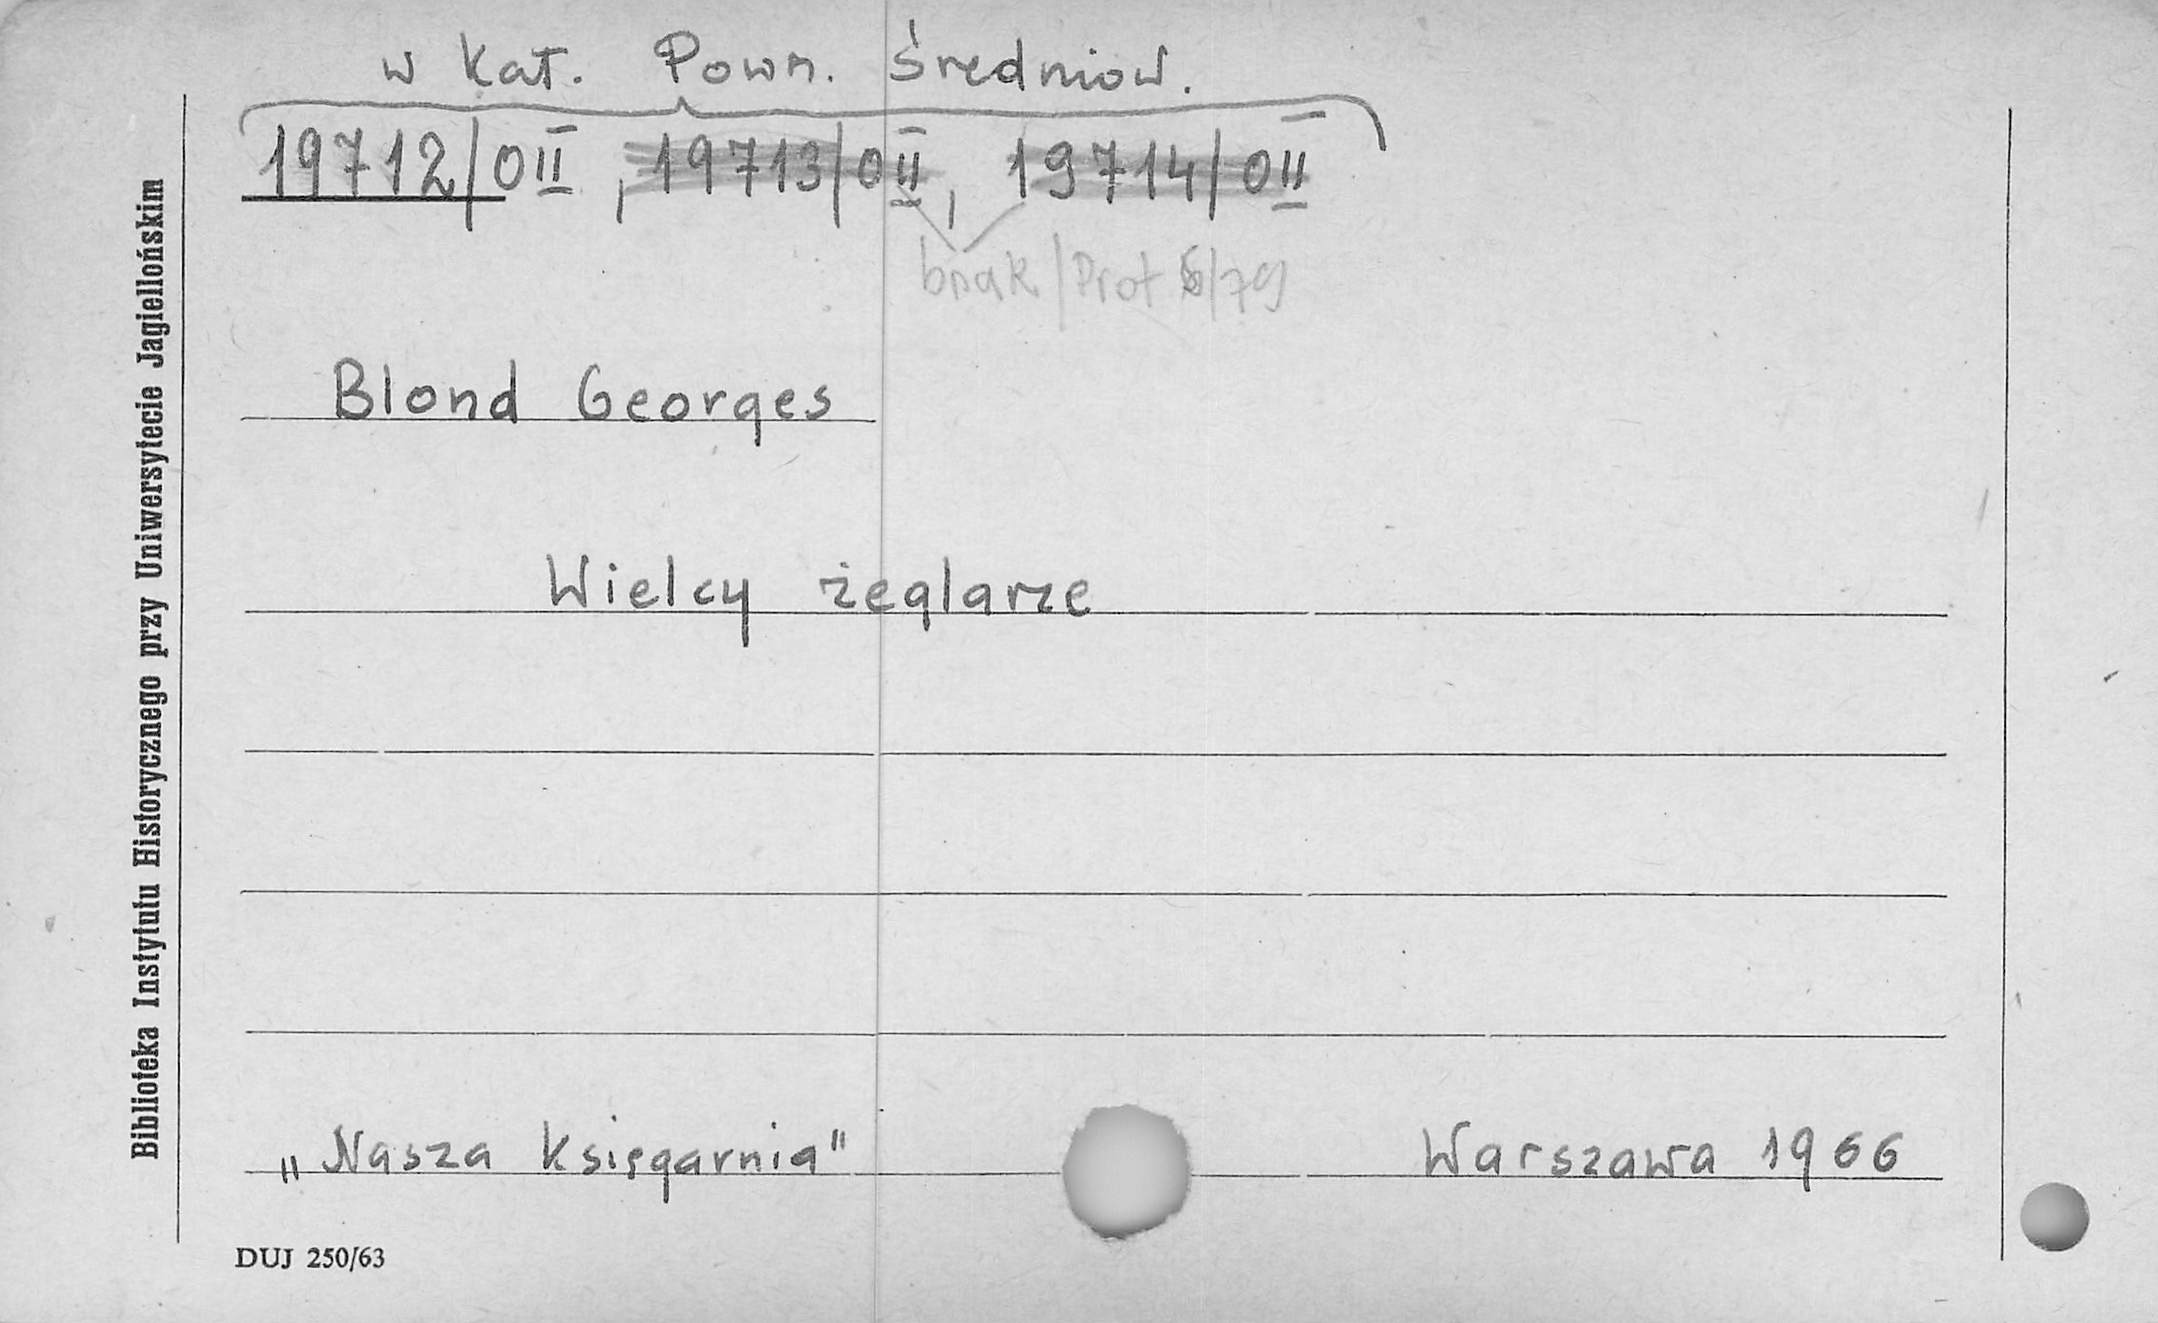 w Kat. Powsz. Średniow.
19712/0II, 19713/0II, 19714/0II
brak/Prot 6/79
Blond Georges
Wielcy żeglarze
„Nasza Księgarnia"
Warszawa 1966
DUJ 250/63
Biblioteka Instytutu Historycznego przy Uniwersytecie Jagiellońskim